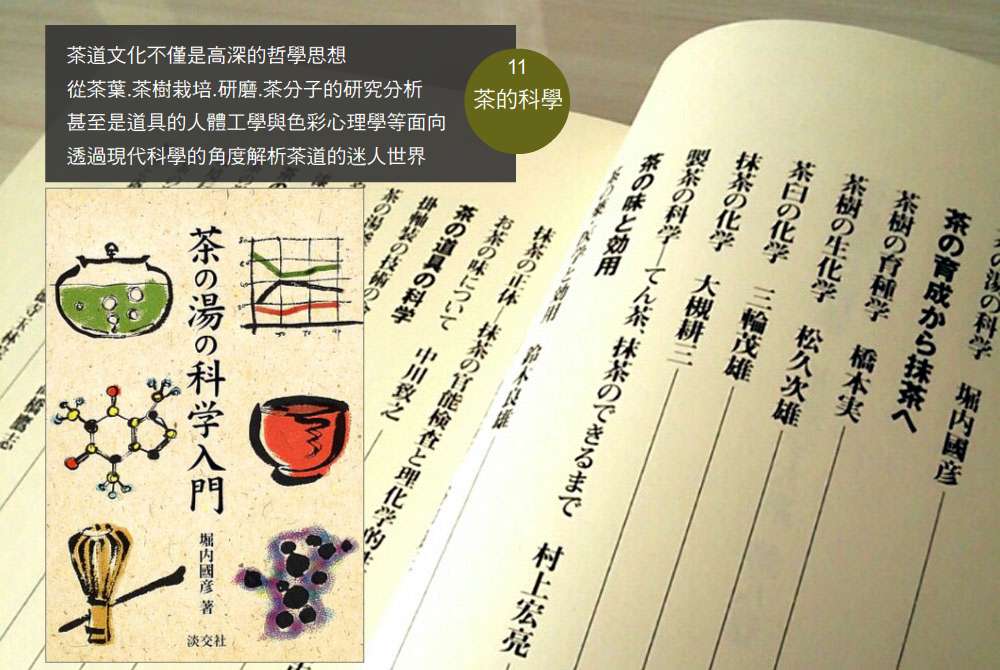 茶道文化不僅是高深的哲學思想
從茶葉.茶樹栽培.研磨.茶分子的研究分析
甚至是道具的人體工學與色彩心理學等面向
透過現代科學的角度解析茶道的迷人世界
11
茶的科學
茶の湯の科学入門
堀内國彦 著
淡交社
の湯の科学 堀内國彦
茶の育成から抹茶へ
茶樹の育種学 橋本実
茶樹の生化学 松久次雄
茶臼の化学 三輪茂雄
抹茶の化学 大槻耕三
製茶の科学―てん茶、抹茶のできるまで 村上宏亮
茶の味と効用
抹茶の正体―抹茶の官能検査と理化学的
お茶の味について 中川致之
茶の道具の科学
掛軸装の技術の
茶の湯